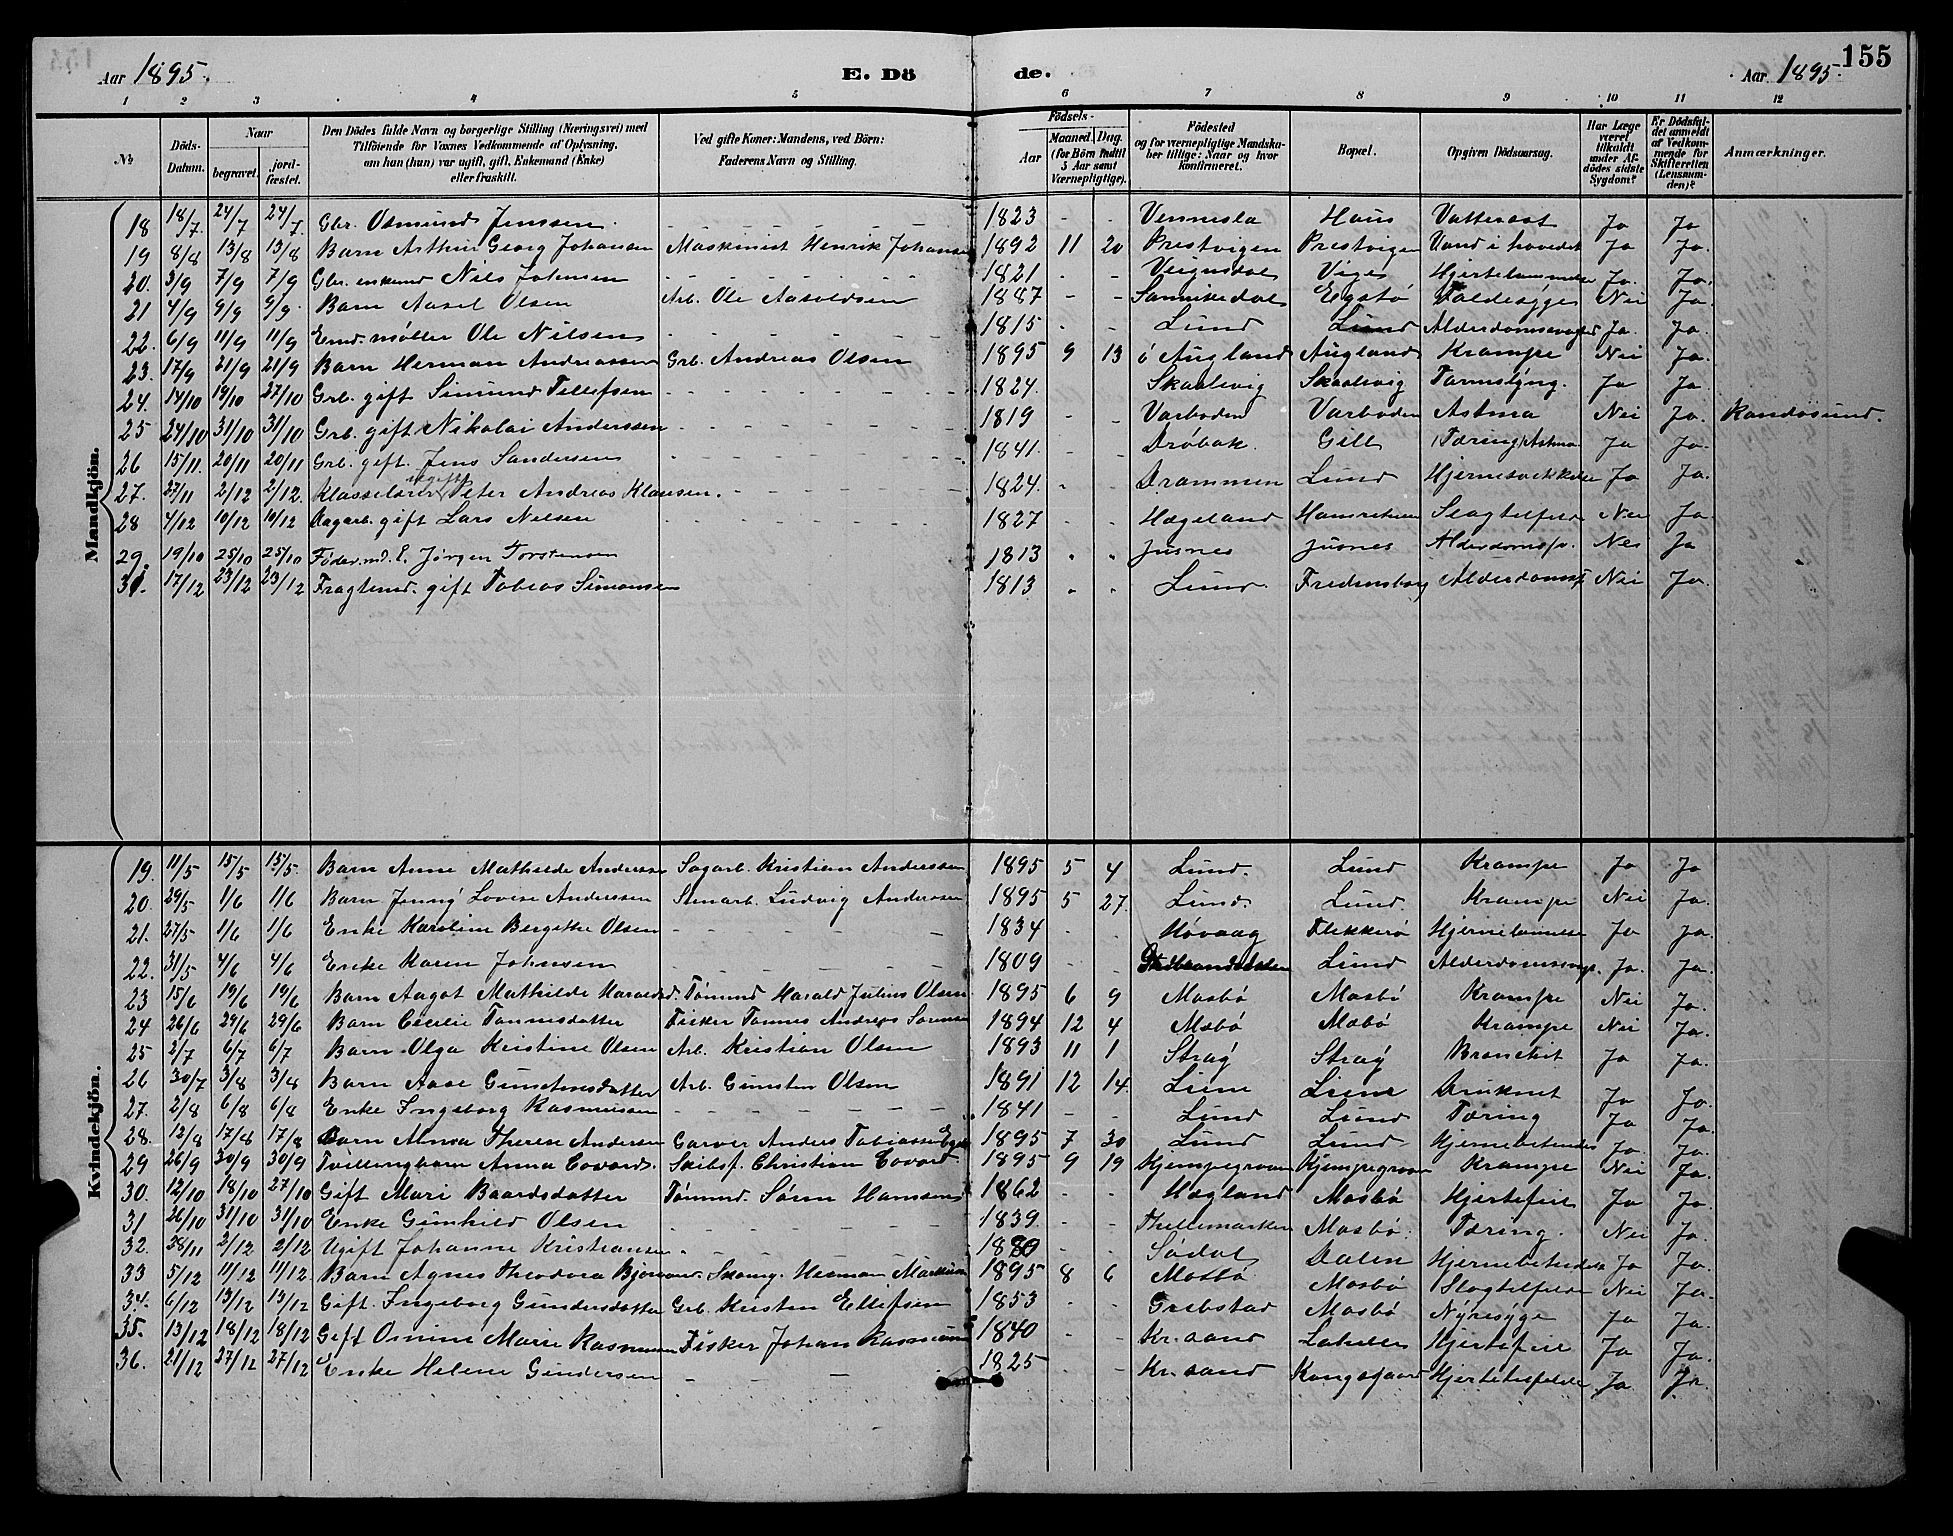 155
Aar 1895. E. Dö de. Aar 1895.
1 2 3 4 5 6 7 8 9 10 11 12
No Döds-Datum. Naar begravet. jord-fæstet. Den Dödes fulde Navn og borgerlige Stilling (Næringsvei) med Tilföiende for Voxnes Vedkommende af Oplysning, om han (hun) var ugift, gift, Enkemand (Enke) eller fraskilt. Ved gifte Koner: Mandens, ved Börn: Faderens Navn og Stilling. Födsels- Aar Maaned. Dag. (for Börn indtil 5 Aar samt Værnepligtige). Födested og for værnepligtige Mandskaber tillige: Naar og hvor konfirmeret. Bopæl. Opgiven Dödsaarsag. Har Læge været tilkaldt under Afdödes sidste Sygdom? Er Dödsfaldet anmeldt af Vedkommende for Skifteretten (Lensmanden)? Anmærkninger.
Mandkjön.
18 18/7 24/7 24/7 Gbr. Osmund Jenssen - - - 1823 - - Vennesla Haus Vattersot Ja Ja
19 8/8 13/8 13/8 Barn Arthur Georg Johansen Maskinist Henrik Johansen 1892 11 20 Prestvigen Prestvigen Vand i hovedet Ja Ja.
20. 3/9 7/9 7/9 Gbr. enkemd Nils Johnsen - - - 1821 - - Veignsdal Vige Hjertelammelse Ja. Ja.
21 4/9 9/9 9/9. Barn Aasel Olsen Arb. Ole Aasoldsen 1887 - - Sannikedal Egstø Faldesyge Nei Ja.
22. 6/9 11/9 11/9 Emd. møller Ole Nilsen - - - 1815 - - Lund Lund Alderdomssvaghed Ja. Ja.
23. 17/9 21/9 21/9 Barn Herman Andreassen Grb. Andreas Olsen 1895 9 13 Augland Augland Krampe Nei Ja.
24. 14/10 19/10 27/10 Grb. gift Simund Tellefsen - - - 1824. Skaalevig Skaalevig Tarmslyng. Ja Ja.
25 24/10 31/10 31/10 Grb. gift Nikolai Anderssen - - - 1819 - - Varboden Varboden Astma Nei Ja. Randøsund.
26 15/11. 20/11 20/11 Grb. gift. Jens Sandersen - - - 1841. - - Drøbak Gill (Tæring) Astma Ja Ja.
27. 27/11 2/12 2/12. Klasselærer ugift Peter Andreas Klausen. - - - 1824. - - Drammen Lund Hjernesvækkelse Ja Ja.
28 4/12 10/12 10/12 Dagarb. gift Lars Nilsen - - - 1827 - - Hægeland Hamreheien Slagtilfælde Nei Ja.
29. 19/10 25/10 25/10 Fødermd. E. Jørgen Torstensen 1813 Jusnes Jusnes Alderdomssv. Nei Ja
31. 17/12 23/12 23/12 Fragtemd. gift Tobias Simonsen 1813. Lund. Fredensborg Alderdomssv. Nei Ja.
Kvindekjön.
19. 11/5 15/5 15/5. Barn Anne Mathilde Andersen Sagarb. Kristian Anderssen 1895 5 4 Lund. Lund Krampe Ja Ja
20. 29/5 1/6 1/6 Barn Jenny Lovise Anderssen Stenarb. Ludvig Anderssen 1895 5 27. Lund. Lund. Krampe Nei Ja.
21. 27/5 1/6 1/6 Enke Karoline Bergitte Olsen - - - 1834 Høvaag Flekkerø Hjernelammelse Ja Ja.
22. 31/5 4/6 4/6 Enke Karen Johnsen - - - 1809 - - Lund Alderdomssvagh. Ja. Ja.
23 15/6 19/6 19/6 Barn Aagot Mathilde Haraldsd. Tømmd Harald Julius Olsen 1895 6 9 Mosbø Mosbø Krampe Nei Ja.
24 26/6 29/6 29/6 Barn Cecilie Tønnesdatter Fisker Tønnes Andreas Sørensen 1894 12 4 Mæbø Mæbø Krampe Nei Ja.
25 2/7 6/7 6/7 Barn Olga Kristine Olsen Arb. Kristian Olsen 1893 11 1 Stray Stray Bronchit Ja Ja.
26 30/7 3/8 3/8 Barn Aase Gunstensdatter Arb. Gunsten Olsen 1891 12 14. Liene Liene Druknet Ja Ja.
27. 2/8 6/8 6/8 Enke Ingeborg Rasmussen - - - 1841 - - Lund Lund Tæring Ja Ja.
28. 12/8 17/8 17/8 Barn Alma Therese Andersen Garver Anders Tobiassen 1895 7 30 Lund Lund Hjernebetændelse Ja. Ja.
29 26/9 30/9 30/9 Tvillingbarn Anna Edvards. Skibsf. Christian Edvard 1895 9 19 Kjempegraven Kjempegraven Krampe Nei Ja.
30. 12/10 18/10 27/10 Gift Mari Baardsdatter Tømmd. Søren Hanssen 1862 - - Hægland Mosbø Hjertefeil Ja Ja.
31 26/10 31/10 31/10 Enke Gunhild Olsen - - - 1839. - - Thellemarken Mosbø. Tæring. Nei Ja.
32. 28/11 2/12 2/12 Ugift Johanne Kristiansen - - - 1880 - - Sødal Dalen Hjernebetændelse Ja Ja.
33 5/12 11/12 11/12. Barn Agnes Theodora Herman 1895 8 6 Mosbø Mosbø Slagtilfælde Nei Ja.
34. 6/12 13/12 13/12 Gift. Ingeborg Gundersdatter Grb. Kristen Ellefsen 1853 - - Grebstad Mosbø Nyresyge Ja Ja.
35. 13/12 18/12 18/12 Gift Omine Marie Rasmussen Fisker Johan Rasmussen 1840 - - Kr.sand Hjertefeil Ja Ja.
36. 21/12 27/12 27/12 Enke Helene Gundersen - - - 1825 - - Kr.sand Kongsgaard Hjertetilfælde Ja. Ja.